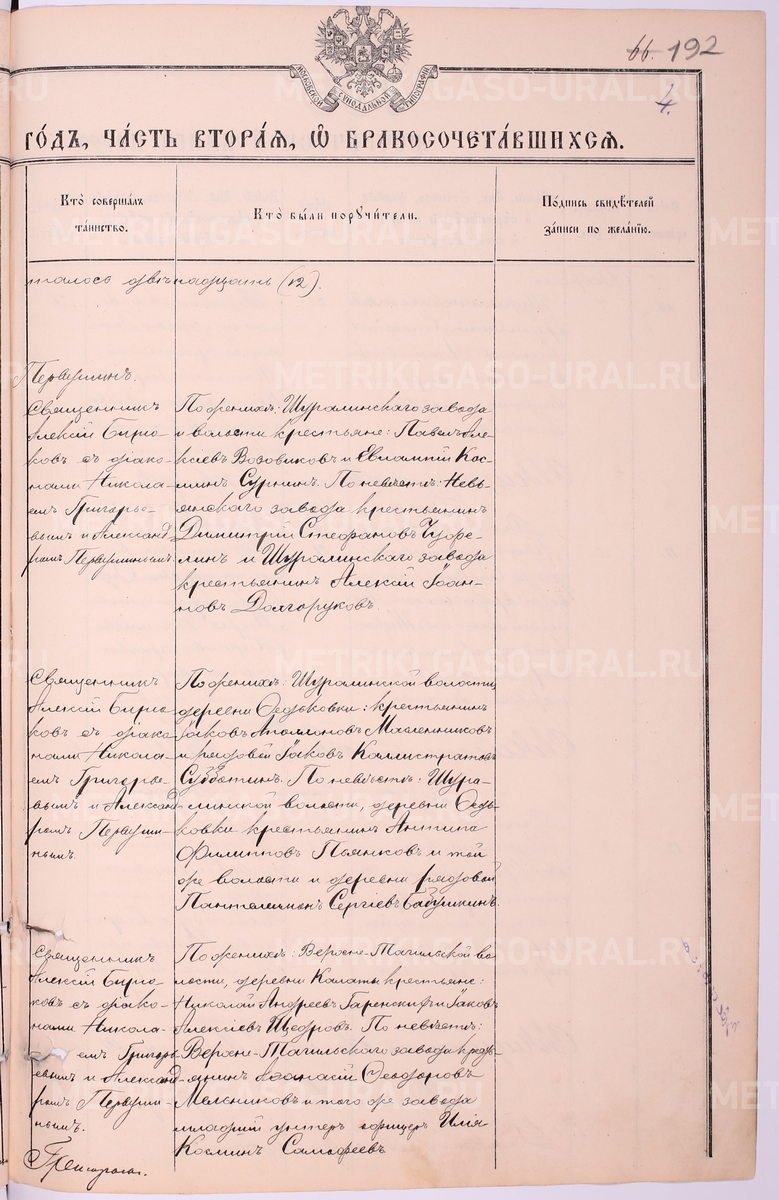 66. 192
4.
МОСКОВСКОЙ СѴНОДАЛЬНОЙ ТИПОГРАФІИ
ГО́ДЪ, ЧА́СТЬ ВТОРА́Я, Ѿ БРАКОСОЧЕТА́ВШИХСЯ.
Кто̀ соверша́лъ та́инство.
Кто̀ бы́ли порꙋчи́тели.
По́дпись свидѣ́телей за́писи по жела́нїю.
талось двѣнадцать (12).
Первушинъ.
Священникъ
Алексій Бирю-
ковъ съ діако-
нами Никола-
емъ Григорье-
вымъ и Александ-
ромъ Первушинымъ.
По женихѣ: Шуралинскаго завода
и волости крестьяне: Павелъ Але-
ксіевъ Возовиковъ и Евлампій Кос-
минъ Суринъ. По невѣстѣ: Невь-
янскаго завода крестьянинъ
Димитрій Стефановъ
и Шуралинскаго завода
крестьянинъ Алексій Іоан-
новъ Долгоруковъ.
Священникъ
Алексій Бирю-
ковъ съ діако-
нами Никола-
емъ Григорье-
вымъ и Александ-
ромъ Первуши-
нымъ.
По женихѣ: Шуралинской волости,
деревни Ѳедьковки: крестьянинъ
Іаковъ Аполлоновъ Масленниковъ
и рядовой Іаковъ Каллистратовъ
Субботинъ. По невѣстѣ: Шура-
линской волости, деревни Ѳедь-
ковки крестьянинъ Антипа
Филипповъ Пьянковъ и той
же волости и деревни рядовой
Пантелеимонъ Сергіевъ Бабушкинъ.
Священникъ
Алексій Бирю-
ковъ съ діако-
нами Никола-
емъ Григорь-
евымъ и Александ-
ромъ Первуши-
нымъ.
По женихѣ: Верхне-Тагильской во-
лости, деревни Калаты крестьяне:
Николай Андреевъ Гаренскихъ и Іаковъ
Алексіевъ Щедровъ. По невѣстѣ:
Верхне-Тагильскаго завода кресть-
янинъ Аѳанасій Ѳеодоровъ
Мельниковъ и того же завода
младшій унтеръ офицеръ Илія
Косминъ Самофеевъ
METRIKI.GASO-URAL.RU